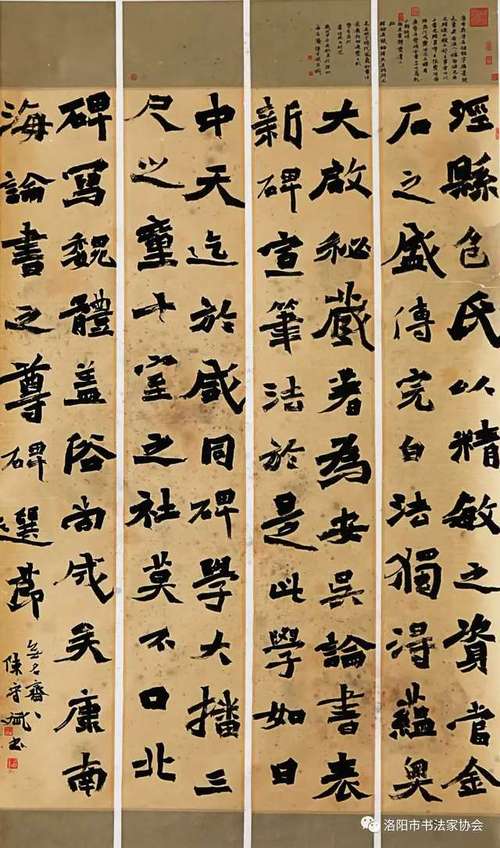 涇縣包氏以精敏之資當金
石之盛傳完白法獨得蘊奧
大啟秘藏著為安吳論書表
新碑宣筆法於是此學如日
中天迄於咸同碑學大播三
尺之童十室之社莫不口北
碑寫魏體蓋俗尚成矣康南
海論書之尊碑選節
陳守斌书
洛阳市书法家协会